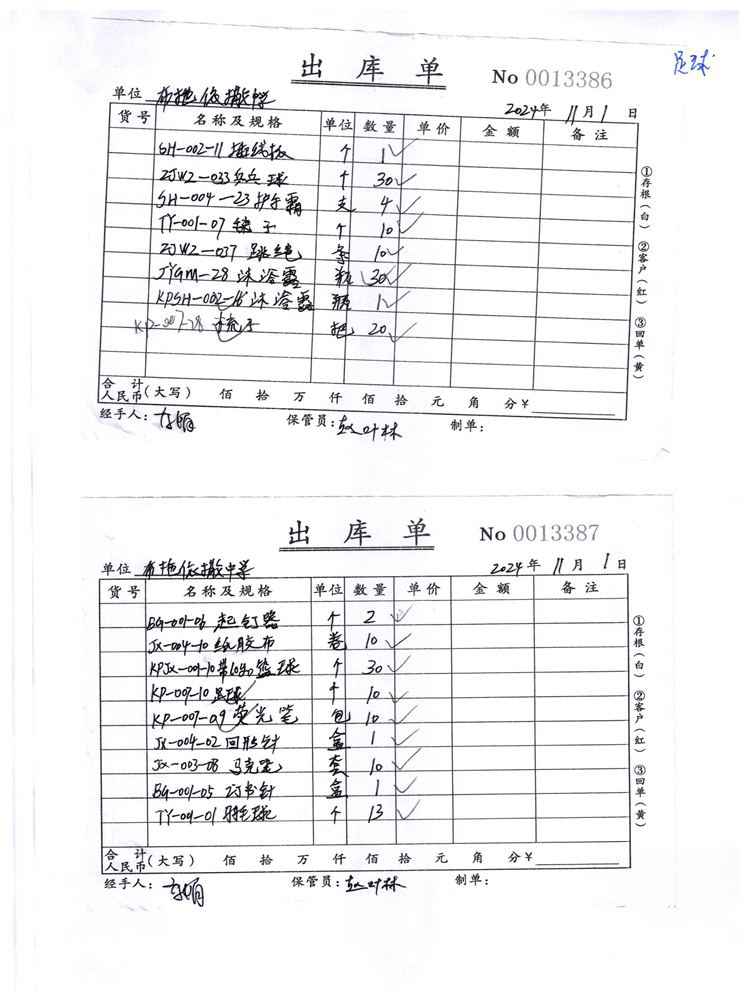 足球
出 库 单 No 0013386
单位 布拖依撒中学 2024年 11月 1日
货号 名称及规格 单位 数量 单价 金额 备注
SH-002-11 插线板 个 1
ZJWZ-033 乒乓球 个 30
SH-004-23 护手霜 支 4
TY-001-07 毽子 个 10
ZJWZ-037 跳绳 条 10
JYGM-28 沐浴露 瓶 30
KPSH-002-16 沐浴露 瓶 1
梳子 把 20
合计人民币(大写) 佰 拾 万 仟 佰 拾 元 角 分¥
经手人: 保管员: 制单:
①存根(白) ②客户(红) ③回单(黄)
出 库 单 No 0013387
单位 布拖依撒中学 2024年 11月 1日
货号 名称及规格 单位 数量 单价 金额 备注
BG-001-06 起钉器 个 2
JX-004-10 纸胶布 卷 10
篮球 个 30
足球 个 10
KP-007-09 荧光笔 包 10
JX-004-02 回形针 盒 1
JX-003-08 马克笔 套 10
BG-001-05 订书针 盒 1
羽毛球 个 13
合计人民币(大写) 佰 拾 万 仟 佰 拾 元 角 分¥
经手人: 保管员: 制单:
①存根(白) ②客户(红) ③回单(黄)